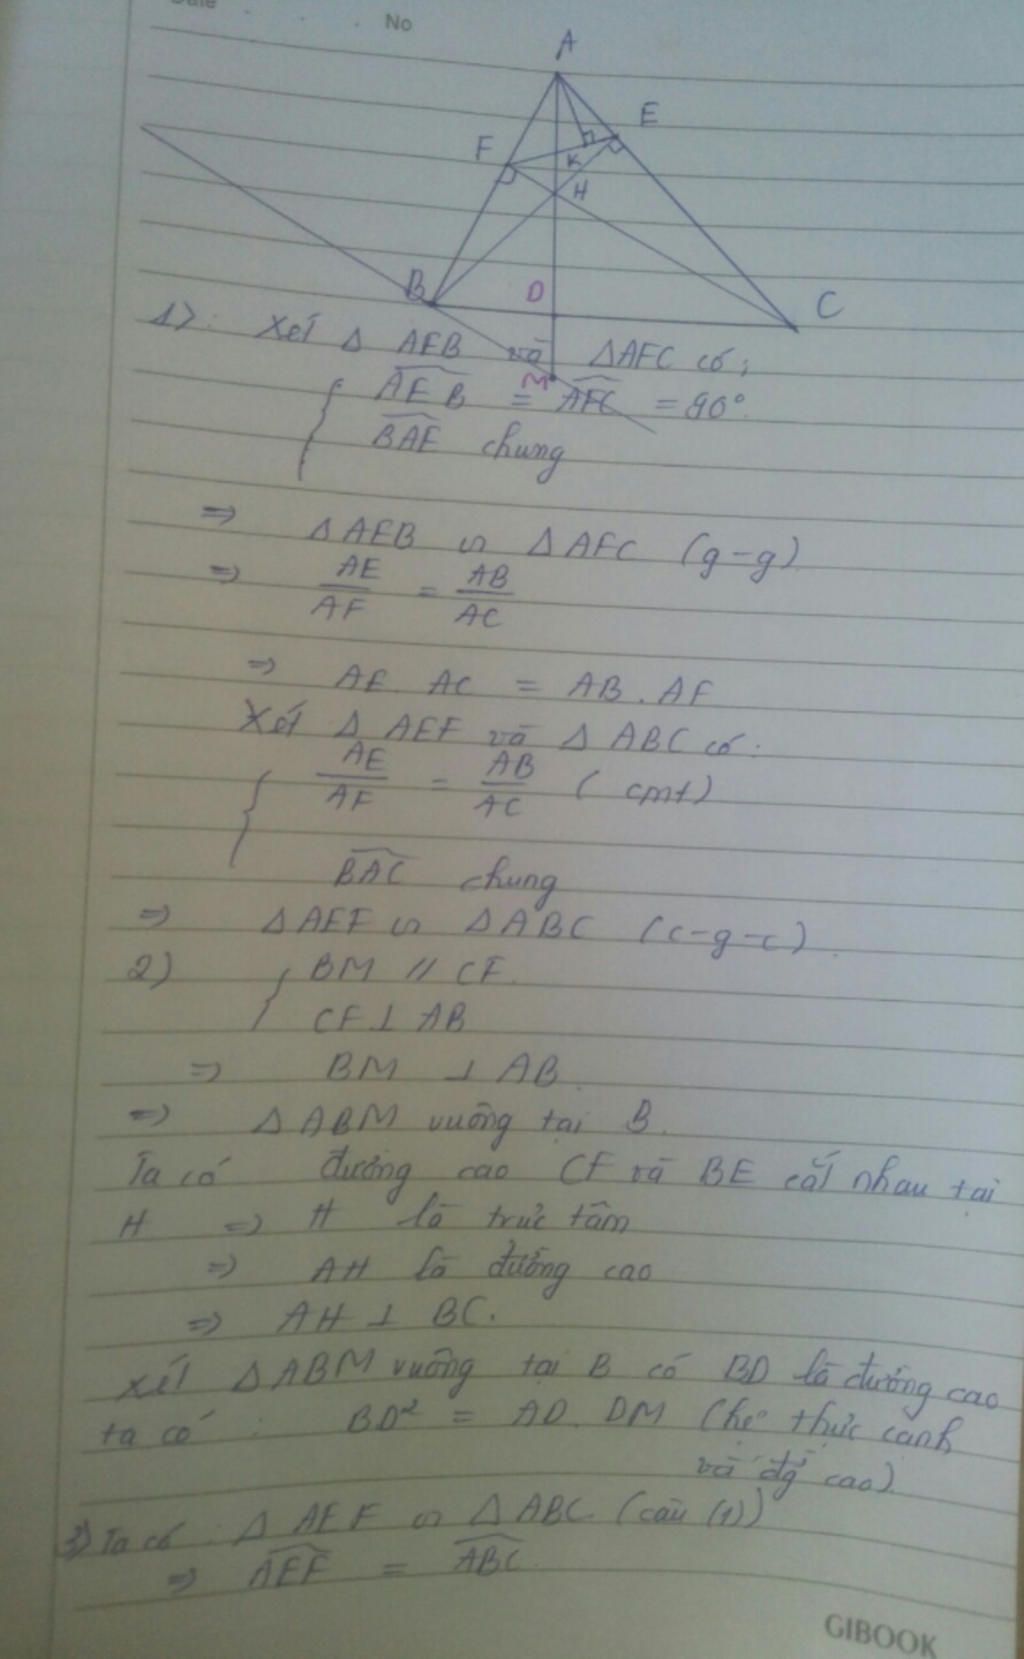 Date . . . No
A
E
F
K
H
B
D
C
M
1): Xét Δ AEB và ΔAFC có;
{ \widehat{AEB} = \widehat{AFC} = 90°.
\widehat{BAE} chung
=> ΔAEB ∽ ΔAFC (g-g)
=> AE/AF = AB/AC
=> AE. AC = AB.AF
Xét Δ AEF và Δ ABC có:
{ AE/AF = AB/AC (cmt)
\widehat{BAC} chung
=> ΔAEF ∽ ΔABC (c-g-c).
2) { BM // CF.
CF ⊥ AB
=> BM ⊥ AB.
=> ΔABM vuông tại B.
Ta có đường cao CF và BE cắt nhau tại
H => H là trực tâm
=> AH là đường cao
=> AH ⊥ BC.
xét ΔABM vuông tại B có BD là đường cao
ta có: BD² = AD. DM (hệ thức cạnh
và đg cao)
3) Ta có: Δ AEF ∽ ΔABC (câu (1))
=> \widehat{AEF} = \widehat{ABC}
GIBOOK